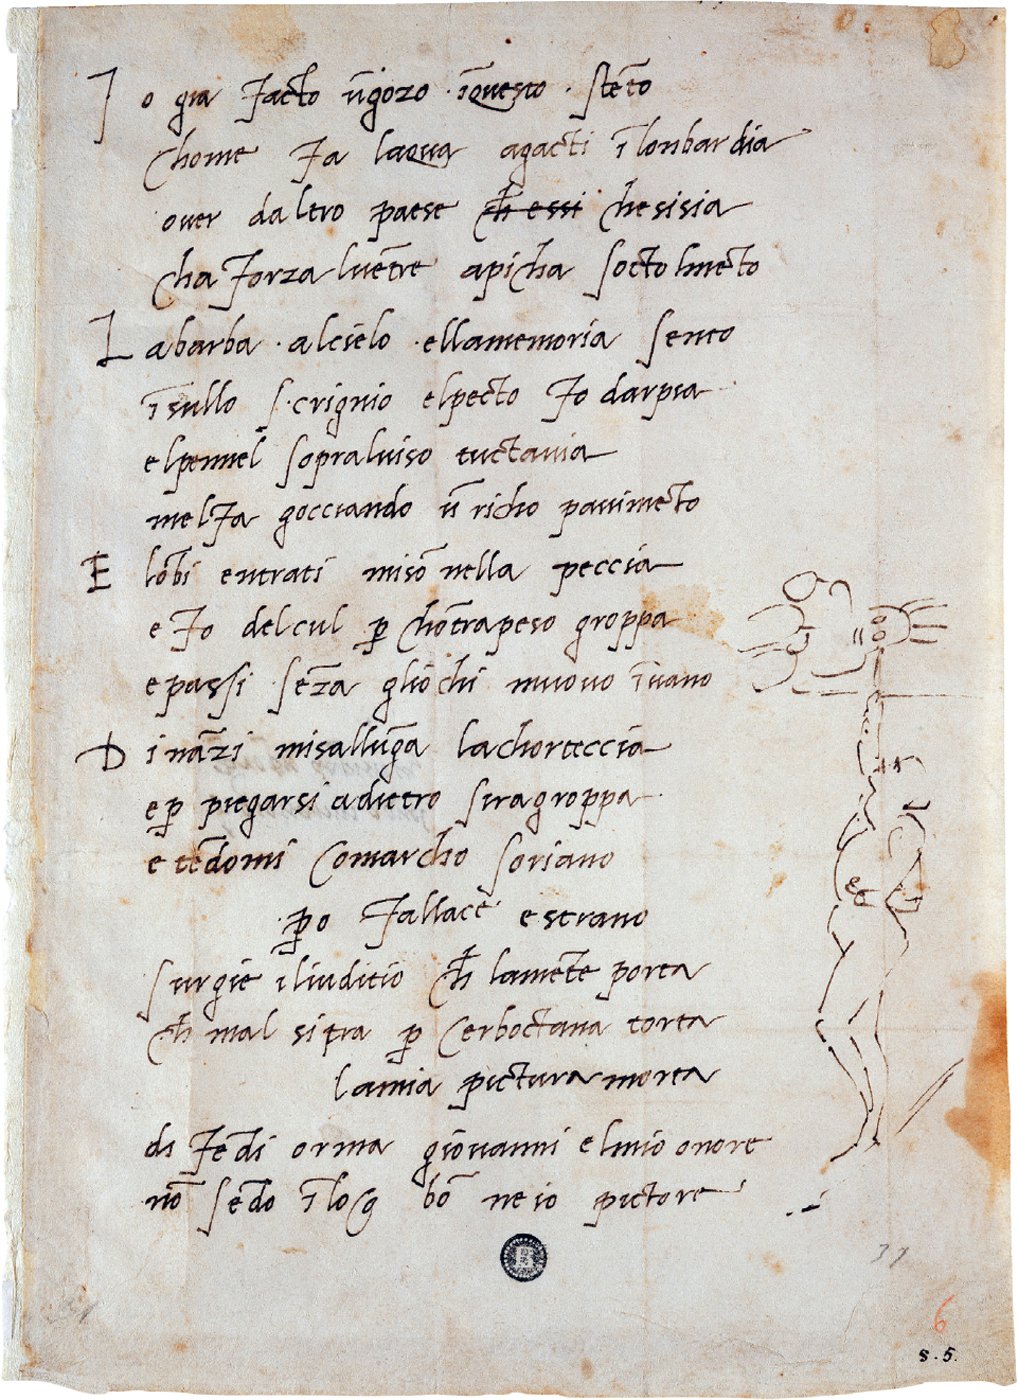 Io gia facto ūgozo ·īquesto · stēto
chome fa laqua agacti ī lonbardia
over daltro paese ch̄ essi che sisia
cha forza lvētre apicha socto lmēto
La barba · alcielo · ella memoria sento
īsullo scrignio elpecto fo darpia
elpennel sopralviso tuctavia
melfa gocciando ū richo pavimēto
E lōbi entrati miso nella peccia
e fo delcul p̱ chōtrapeso groppa
e passi sēza gliochi muovo īvano
Dināzi misallūga lachorteccia
e p̱ piegarsi adietro siragroppa
e tēdomi comarcho soriano
p̱o fallace e strano
surgie iliuditio ch̄ lamēte porta
ch̄ mal si tra p̱ cerboctana torta
lamia pictura morta
di fēdi orma giovanni elmio onore
nō sēdo ī log bō ne io pictore
37
6
s. 5.